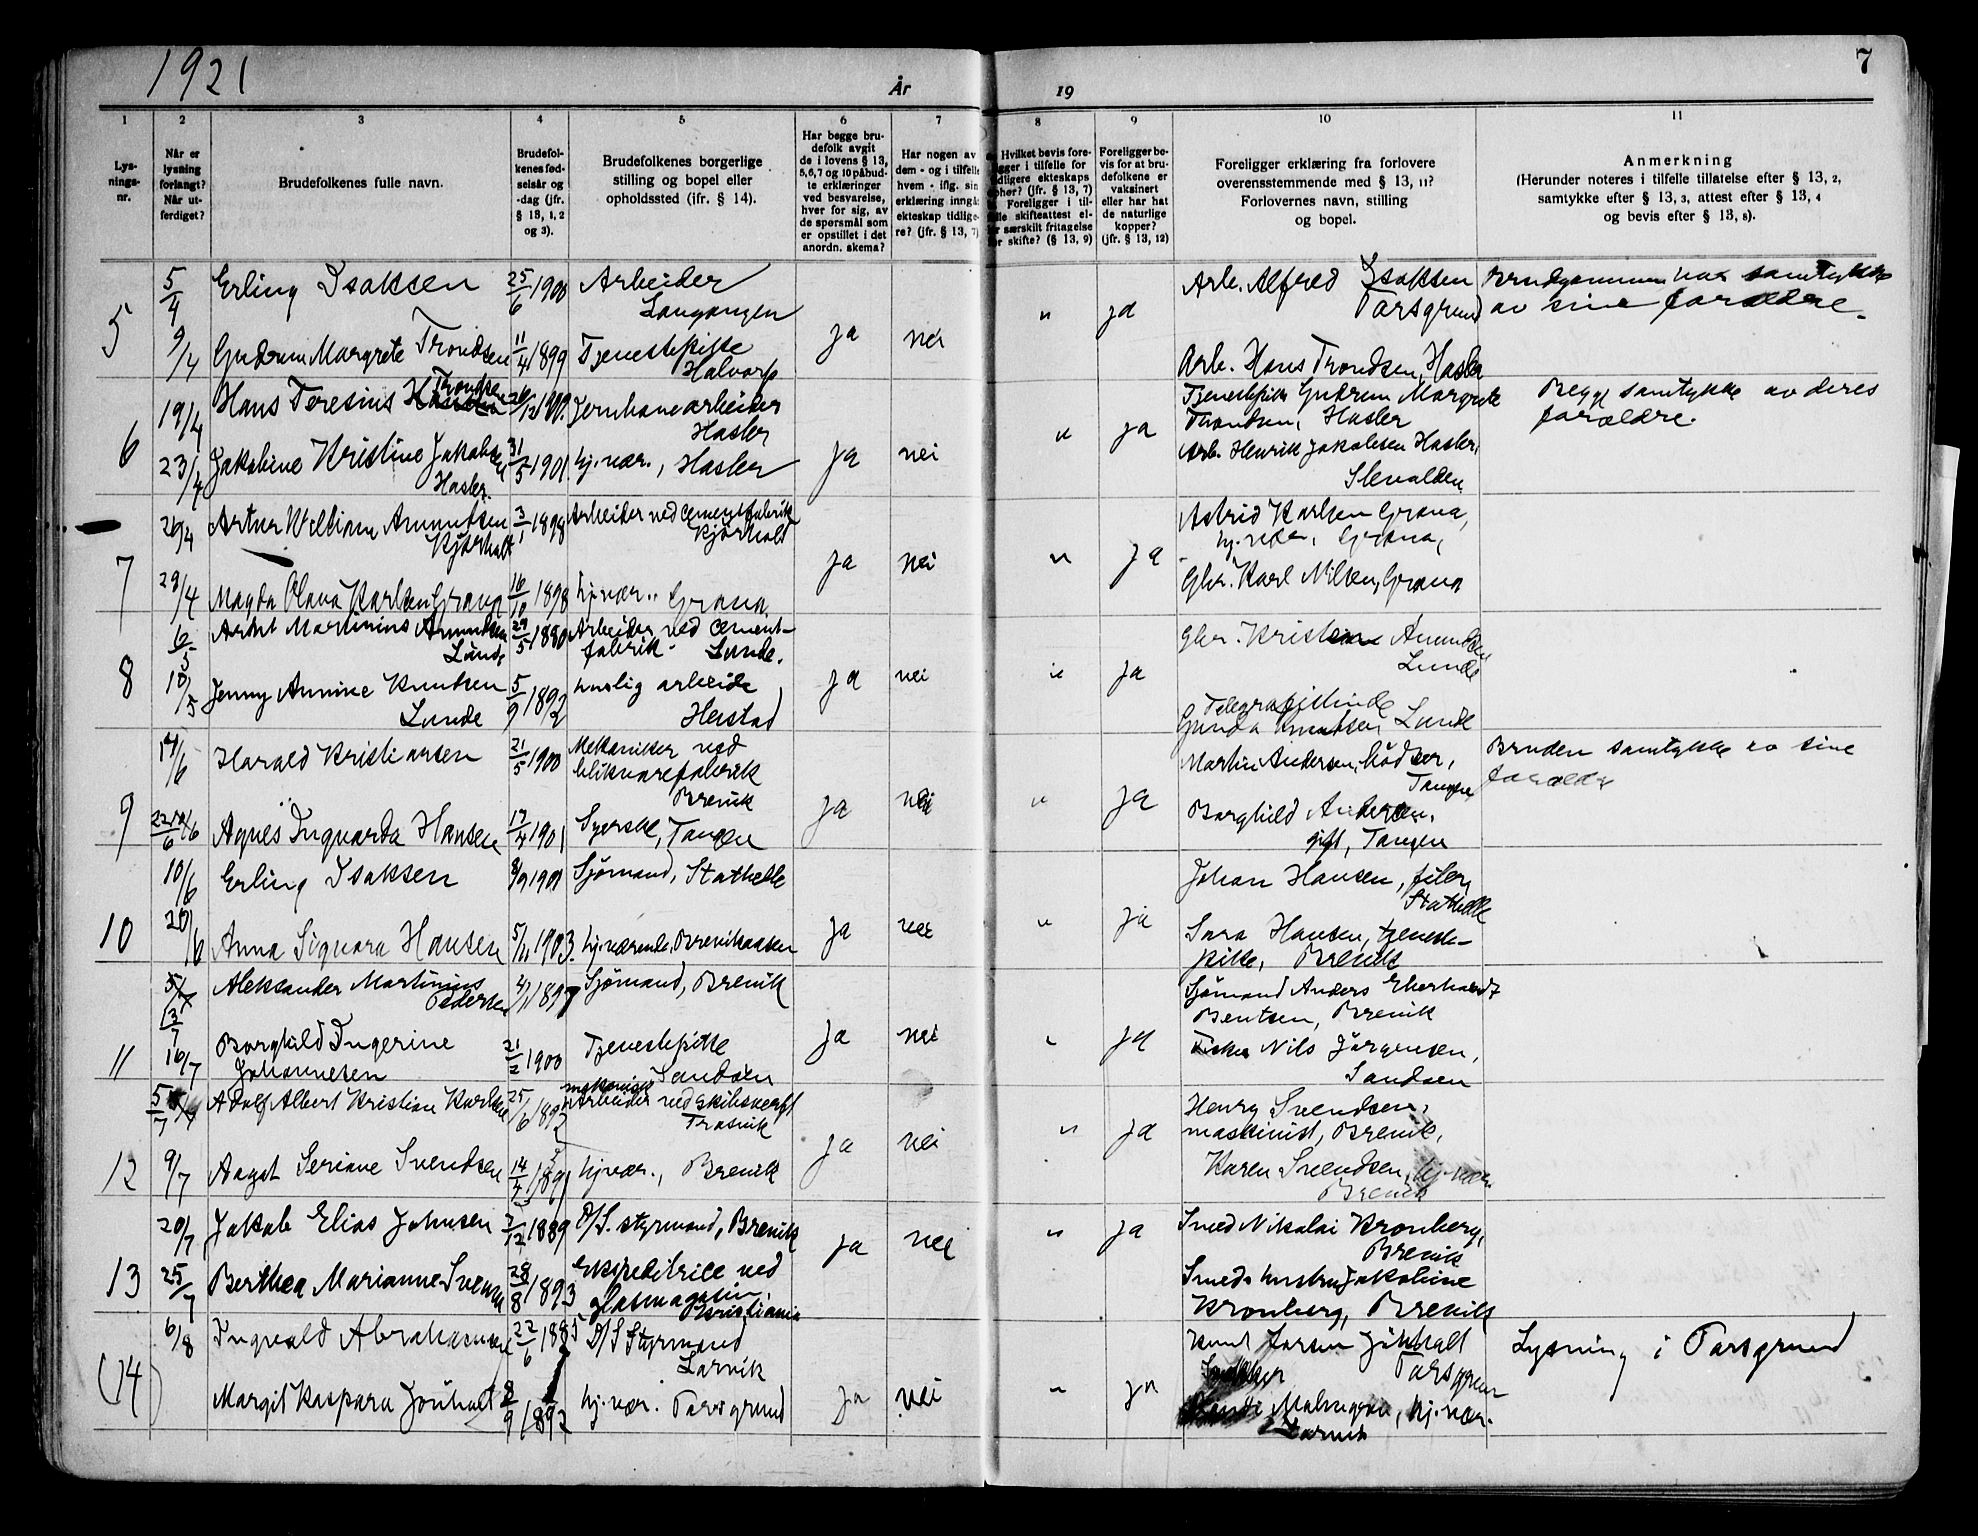 1921
År
19
7
1
2
3
4
5
6
7
8
9
10
11
Lys-
nings-
nr.
Når er
lysning
forlangt?
Når ut-
ferdiget?
Brudefolkenes fulle navn.
Brudefol-
kenes fød-
selsår og
-dag (jfr.
§ 13, 1, 2
og 3).
Brudefolkenes borgerlige
stilling og bopel eller
opholdssted (ifr. § 14).
Har begge bru-
defolk avgit
de i lovens § 13,
5, 6, 7 og 10 påbud-
te erklæringer
ved besvarelse,
hver for sig, av
de spørsmål som
er opstillet i det
anordn. skema?
Har nogen av
dem - og i tilfelle
hvem - iflg. sin
erklæring inngåt
ekteskap tidlige-
re? (jfr. § 13, 7)
Hvilket bevis fore-
ligger i tilfelle for
tidligere ekteskaps
ophør? (jfr. § 13, 7)
Foreligger i til-
felle skifteattest el-
ler særskilt fritagelse
for skifte? (§ 13, 9)
Foreligger be-
vis for at bru-
defolkene er
vaksinert
eller har hat
de naturlige
kopper?
(jfr. § 13, 12)
Foreligger erklæring fra forlovere
overensstemmende med § 13, 11?
Forlovernes navn, stilling
og bopel.
Anmerkning
(Herunder noteres i tilfelle tillatelse efter § 13, 2,
samtykke efter § 13, 3, attest efter § 13, 4
og bevis efter § 13, 8).
5
5/4
Erling Isaksen
25/6 1900
Arbeider
Langangen
ja
nei
"
ja
Arb. Alfred Isaksen
Porsgrund
Brudgommen har samtykke
av sine forældre.
9/4
Gudrun Margrete Trondsen
11/4 1899
Tjenestepike
Halvarp
Arb. Hans Trondsen, Hasler
6
19/4
Hans Teresius Trondsen
Jernbanearbeider
Hasler
ja
nei
"
ja
Tjenestepike Gudrun Margrete
Trondsen, Hasler
Begge samtykke av deres
forældre.
23/4
Jakobine Kristine Jakobsen
Hasler
31/5 1901
hj.vær., Hasler
Arb. Henrik Jakobsen Hasler,
7
26/4
Artur William Amundsen
Kjørholt
3/1 1898
Arbeider ved cementfabrik
Kjørholt
ja
nei
"
ja
Astrid Karlsen Grava,
hj.vær, Grava,
29/4
Magda Olava Karlsen Grava
16/10 1898
hj.vær.. Grava.
Gbr. Karl Nilsen, Grava
8
6/5
Artur Martinius Amundsen
Lunde
29/5 1880
Arbeider ved cement-
fabrik - Lunde.
ja
nei
"
ja
Gbr. Kristen Amundsen
Lunde
10/5
Jenny Annine Knutsen
Lunde
5/9 1892
huslig arbeide
Heistad
Telegrafistinde
Gunda Knutsen Lunde
9
14/6
Harald Kristiansen
21/5 1900
Mekaniker ved
blikvarefabrik
Brevik
ja
nei
"
ja
Martin Andersen, bødker,
Tangen
Bruden samtykke av sine
forældre
22/6
Agnes Ingvarda Hansen
17/4 1901
Syerske, Tangen
Borghild Andersen,
gift, Tangen
10
10/6
Erling Isaksen
8/9 1901
Sjømand, Stathelle
ja
nei
"
ja
Johan Hansen, filer,
Stathelle
20/6
Anna Sigvara Hansen
5/11 1903.
hj.værende, Breviksaasen
Sara Hansen, tjeneste-
pike, Brevik
11
5/7
13/7
Aleksander Martinius
Pedersen
4/1 1897
Sjømand, Brevik
ja
nei
"
ja
Sjømand Anders Eberhardt
Bentsen, Brevik
16/7
Borghild Ingerine
Johannesen
21/2 1900
Tjenestepike
Sandøen
Fisker Nils Jørgensen,
Sandøen
12
5/7
Adolf Albert Kristian Karlsen
25/6 1892
mekanisk
Arbeider ved skibsverft
Trosvik
ja
nei
"
ja
Henry Svendsen,
maskinist, Brevik,
9/7
Aagot Seriane Svendsen
14/4 1891
hj.vær., Brevik
Karen Svendsen, hj.vær.
Brevik
13
20/7
Jakob Elias Johnsen
3/12 1889
D/S. styrmand, Brevik
ja
nei
"
ja
Smed Nikolai Kronberg,
Brevik
25/7
Berthea Marianne Svensen
28/8 1893
Ekspeditrice ved
glasmagasin,
Kristiania
Smeds hustru Jakobine
Kronberg, Brevik
(14)
6/8
Ingvald Abrahamsen
22/6 1885
D/S Styrmand
Larvik
ja
nei
"
ja
Knut Larsen Jønholt
Porsgrun
Lysning i Porsgrund
Margit Kaspara Jønholt
2/9 1892
hj.vær. Porsgrund
Malmgren, hj.vær.
Larvik